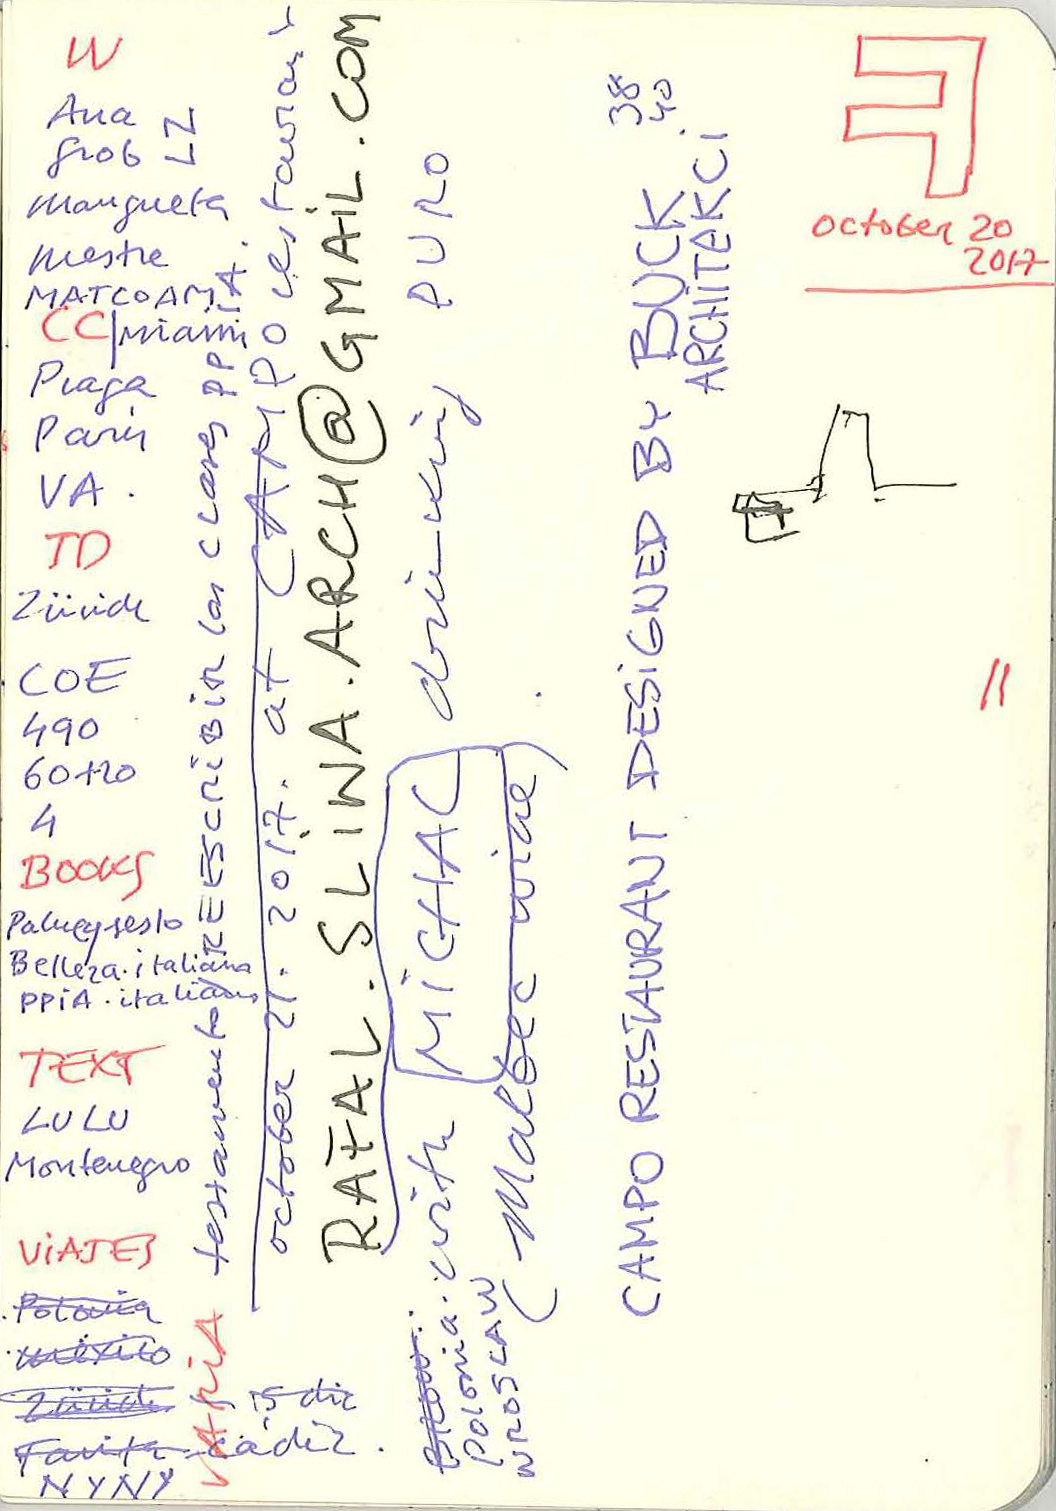 W
Ana
Grob LZ
Mangueta
Mestre
MATCOAM
CC/Miami
Praga
París
VA.
TD
Zürich
COE
490
60+20
4
BOOKS
Palimpsesto
Belleza.italiana
PPiA.italiano
TEXT
LULU
Montenegro
ViAJES
Polonia
México
Zürich
Tarifa Cádiz.
15 dic
NYNY
VARIA
testamento/REESCRIBIR las clases PPiA.
october 21. 2017. at CAMPO restaurant
RAFAL.SLiWA.ARCH@GMAIL.COM
with MiCHAL drinking PURO
(Malbec wine)
Polonia.
WROSCLAW
CAMPO RESTAURANT DESiGNED BY BUCK
ARCHiTEKCi
38
40
october 20
2017
11